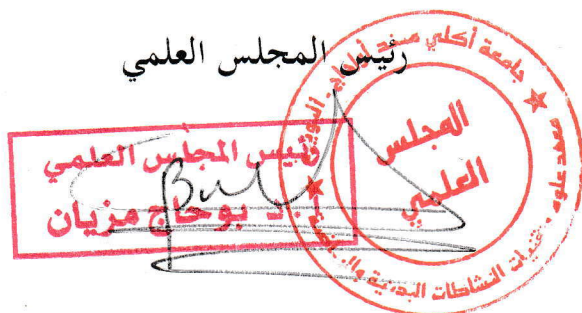 رئيس المجلس العلمي
رئيس المجلس العلمي
د بوحاج مزيان
جامعة أكلي محند أولحاج البويرة
المجلس
العلمي
معهد علوم وتقنيات النشاطات البدنية